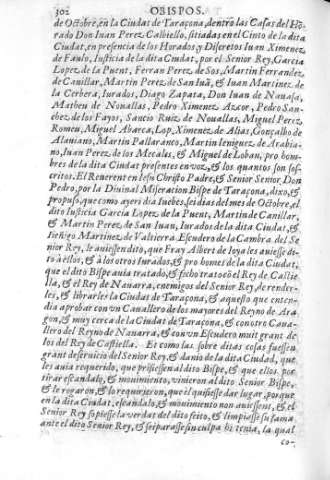 302 OBISPOS.
de Octubre, en la Ciudat de Taraçona, dentro las Casas del Honrado
rado Don Iuan Perez Calbiello, sitiadas en el Cinto de la dita
Ciudat, en presencia de los Horados y Discretos Iuan Ximenez
de Faulo, Iusticia de la dita Ciudat, por el Senior Rey, Garcia
Lopez de la Puent, Ferran Perez de Sos, Martin Ferrandez
de Canillar, Martin Perez de San Iuã, & Iuan Martinez de
la Cerbera, Iurados, Diago Zapata, Don Iuan de Nouasa,
Matheu de Nouallas, Pedro Ximenez Azcor, Pedro Sanchez
chez de los Fayos, Sancio Ruiz de Nouallas, Miguel Perez
Romeu, Miguel Abarca, Lop Ximenez de Alias, Gonçalbo de
Alamano, Martin Pallaranto, Martin Ieniguez de Arabiano,
no, Iuan Perez de los Mecalas, & Miguel de Loban, pro hombres
bres de la dita Ciudat presentes en voz, & los quantos son soscritos.
critos. El Reuerent en Iesu Christo Padre, & Senior Senior Don
Pedro, por la Diuinal Miseracion Bispe de Taraçona, dixo, &
propuso, que como ayer dia Iuebes, seis dias del mes de Octubre, el
dito Iusticia Garcia Lopez de la Puent, Martin de Canillar,
& Martin Perez de San Iuan, Iurados de la dita Ciudat, &
Ieñigo Martinez de Valtierra, Escudero de la Cambra del Senior
nior Rey, le auiessen dito, que Fray Albert de Ioya les auiesse dito
to à ellos, & à los otros Iurados, & pro homes de la dita Ciudat,
que el dito Bispe auia tratado, & fecho trato cõ el Rey de Castiella,
lla, & el Rey de Nauarra, enemigos del Senior Rey, de renderles,
les, & librarles la Ciudat de Taraçona, & aquesto que entendia
dia aprobar con vn Cauallero de los mayores del Reyno de Aragon,
gon, & muy cerca de la Ciudat de Taraçona, & con otro Cauallero
llero del Reyno de Nauarra, & con vn Escudero muit grant de
los del Rey de Castiella. Et como las sobre ditas cosas fuessen
grant deseruicio del Senior Rey, & danio de la dita Ciudad, que
les auia requerido, que prisiessen al dito Bispe, & que ellos por
tirar escandalo, & mouimiento, vinieron al dito Senior Bispe,
& le rogaron, & lo requirieron, que el quisiesse dar lugar, porque
en la dita Ciudat, escandalo, & mouimiento non auiesse, & el
Senior Rey sopiesse la verdat del dito feito, & limpiesse su fama
ante el dito Senior Rey, & se iparasse su culpa hi tenia, la qual
co-